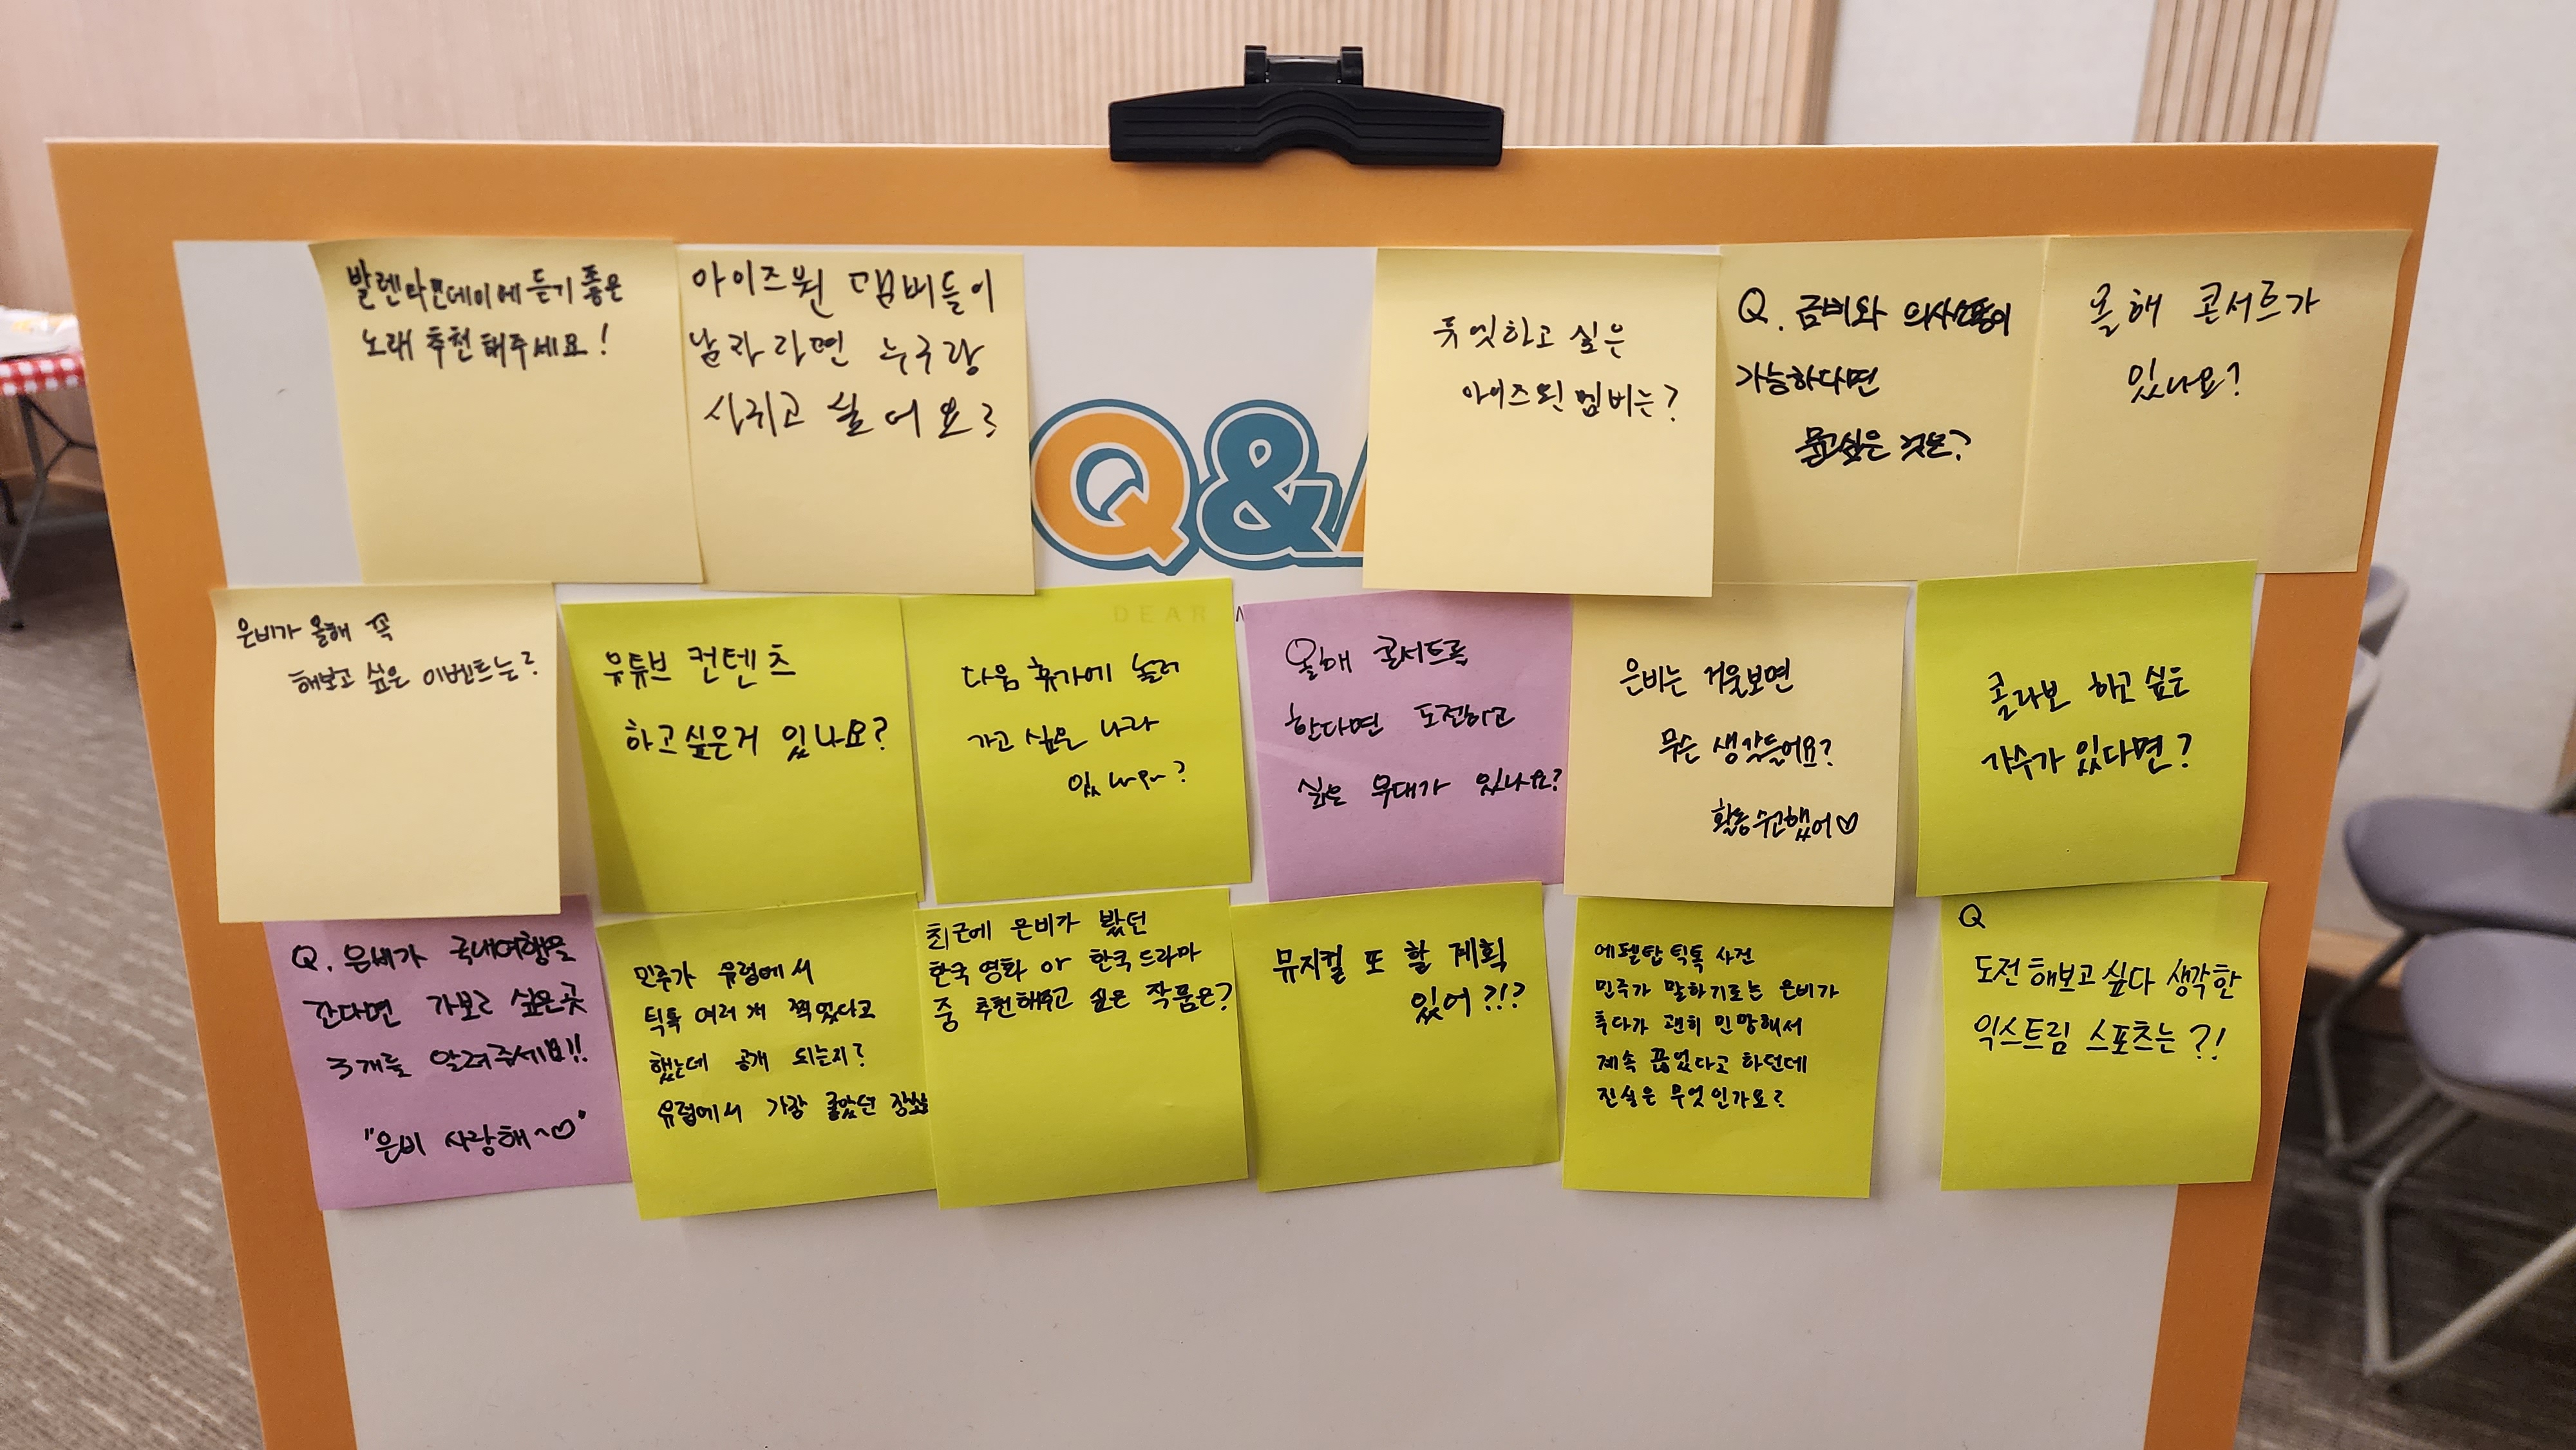 발렌타인데이에 듣기 좋은
노래 추천해주세요!
아이즈원 멤버들이
남자라면 누구랑
사귀고 싶어요?
Q&
듀엣하고 싶은
아이즈원 멤버는?
Q. 금비와 의사소통이
가능하다면
묻고싶은 것은?
올해 콘서트가
있나요?
DEAR
은비가 올해 꼭
해보고 싶은 이벤트는?
유튜브 컨텐츠
하고싶은거 있나요?
다음 휴가에 놀러
가고 싶은 나라
있나요?
올해 콘서트를
한다면 도전하고
싶은 무대가 있나요?
은비는 거울보면
무슨 생각들어요?
활동 수고했어♡
콜라보 하고 싶은
가수가 있다면?
Q. 은비가 국내여행을
간다면 가보고 싶은곳
3개를 알려주세요!!
"은비 사랑해~♡"
민주가 유럽에서
틱톡 여러 개 찍었다고
했는데 공개 되는지?
유럽에서 가장 좋았던 장소
최근에 은비가 봤던
한국 영화 or 한국 드라마
중 추천해주고 싶은 작품은?
뮤지컬 또 할 계획
있어?!?
에펠탑 틱톡 사건
민주가 말하기로는 은비가
추다가 괜히 민망해서
계속 끊었다고 하던데
진실은 무엇인가요?
Q
도전 해보고 싶다 생각한
익스트림 스포츠는?!